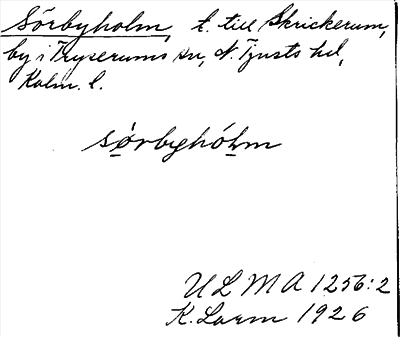 Sörbyholm, t. till Skrickerum,
by i Tryserums sn, N. Tjusts hd,
Kalm. l.
sö̀rbyhó̱ḻm
ULMA 1256:2
K. Larm 1926